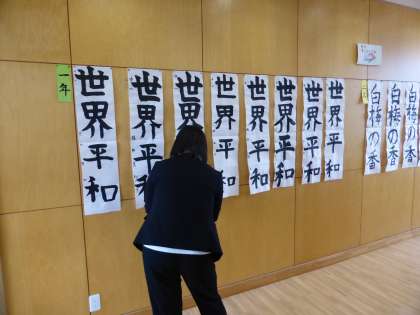 一年
世界平和
世界平和
世界
世界平和
世界平和
世界平和
世界平和
世界平和
白梅の香
白梅の香
白梅の香